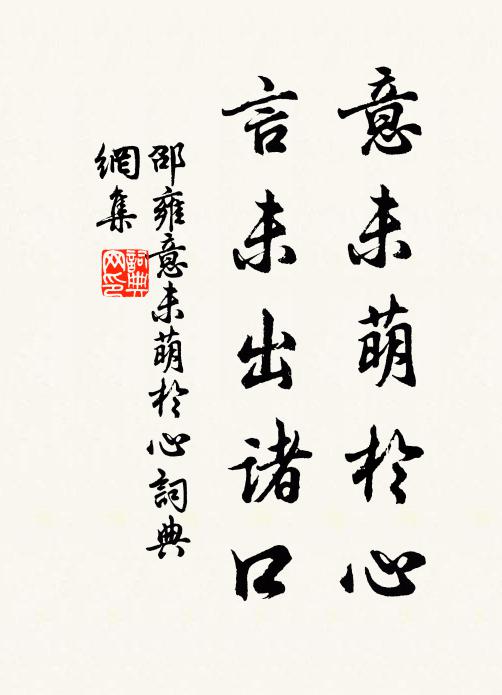 意未萌於心
言未出诸口
邵雍意未萌於心詞典
網集
詞典
网印